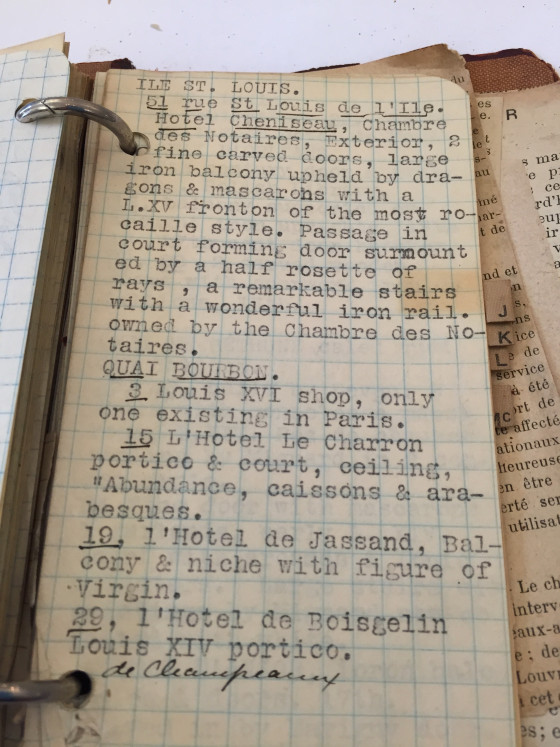 ILE ST. LOUIS.
51 rue St Louis de l'Ile.
Hotel Cheniseau, Chambre
des Notaires, Exterior, 2
fine carved doors, large
iron balcony upheld by dra-
gons & mascarons with a
L.XV fronton of the most ro-
caille style. Passage in
court forming door surmount
ed by a half rosette of
rays , a remarkable stairs
with a wonderful iron rail.
owned by the Chambre des No-
taires.
QUAI BOURBON.
3 Louis XVI shop, only
one existing in Paris.
15 L'Hotel Le Charron
portico & court, ceiling,
"Abundance, caissons & ara-
besques.
19, l'Hotel de Jassand, Bal-
cony & niche with figure of
Virgin.
29, l'Hotel de Boisgelin
Louis XIV portico.
de Champeaux
R
J
K
L
Mc
service
affecté
ationaux
heureuse
en être
utilisat
Le ch
interv
eaux-a
Louvr